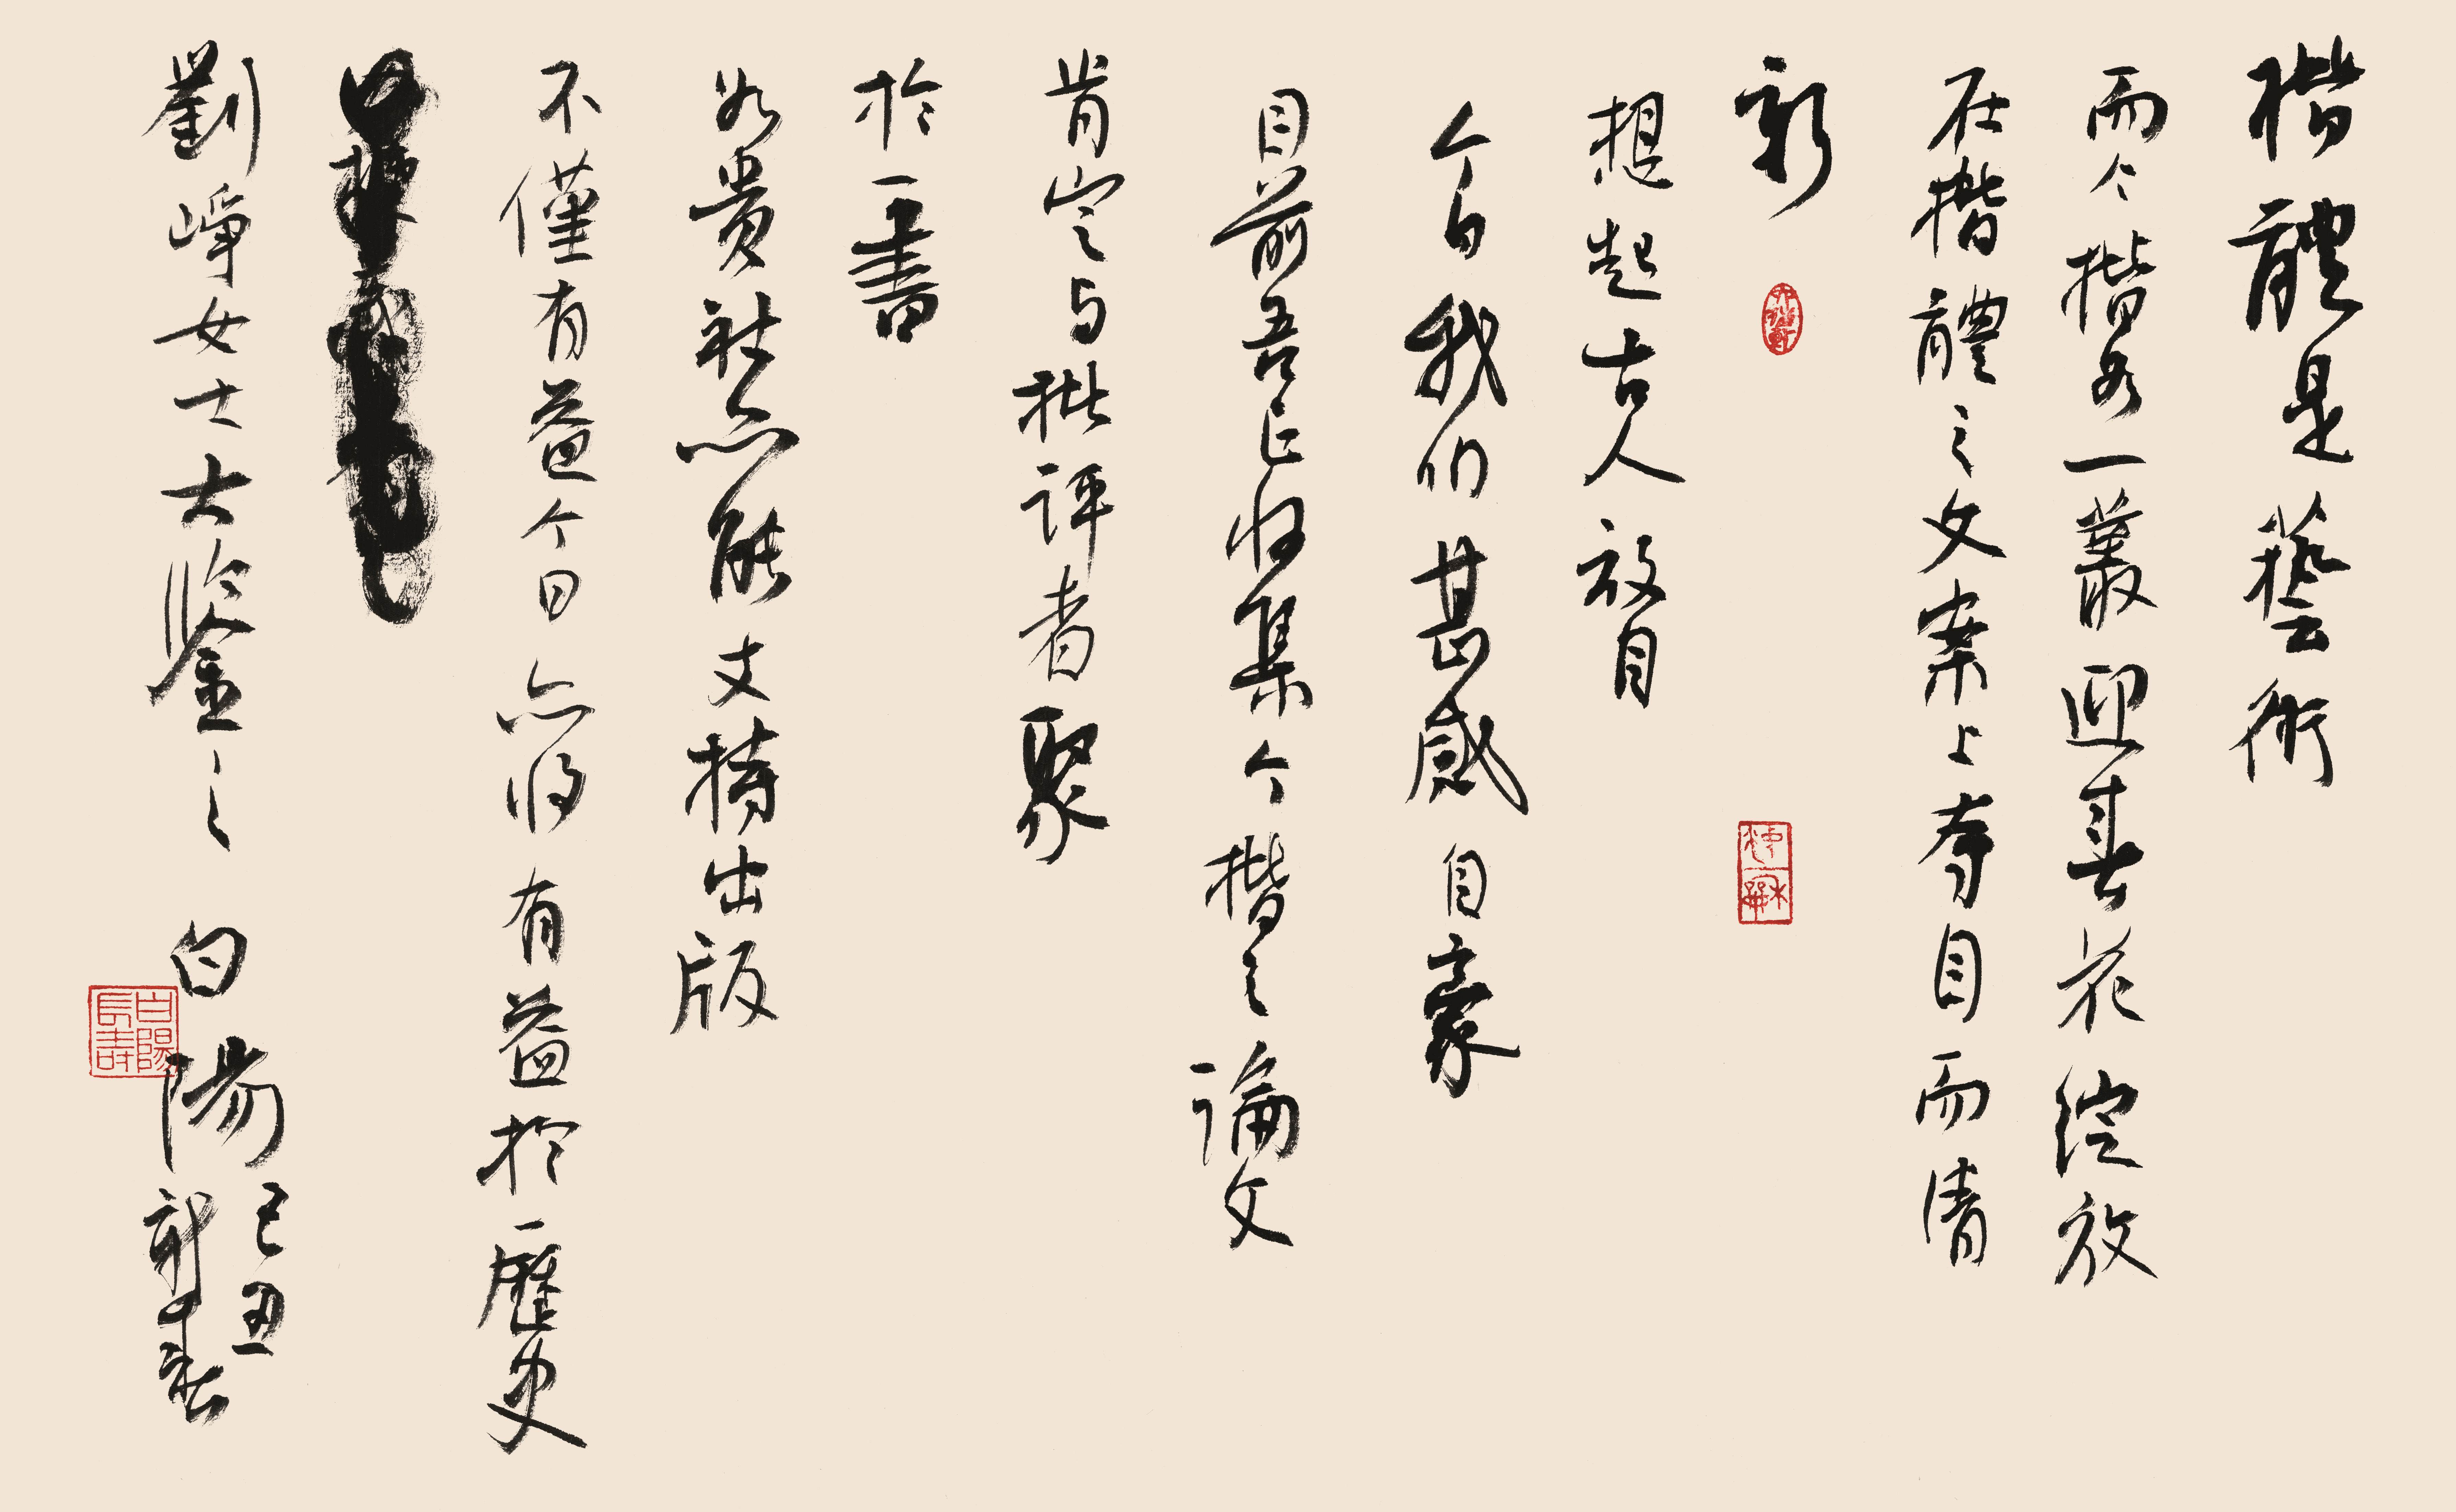 楷體是藝術
而今楷如一叢迎春花綻放
在楷體之文案上奪目而清
新
想起古人放目
今日我们甚感自豪
目前吾已收集今楷之論文
肯定与批评者聚
於一書
如贵社亦能支持出版
不僅有益今日亦将有益於歷史
劉崢女士大鉴之 白陽
己丑
新春
白陽長壽